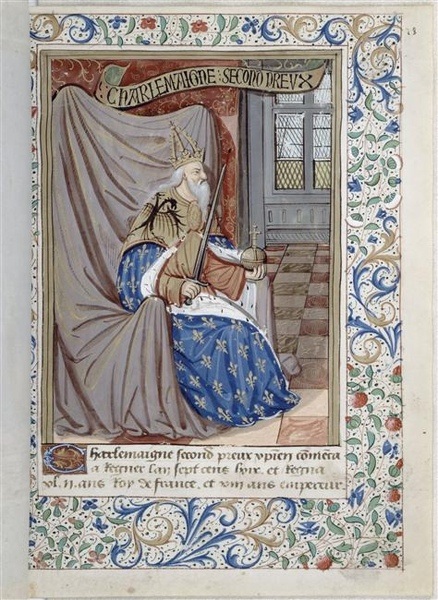 CHARLEMAIGNE : SECOND PREUX
Charlemaigne second preux xpien comenca
a Regner lan sept cens lxix. et Regna
xl. n. ans Roy de france, et xiiii ans empereur